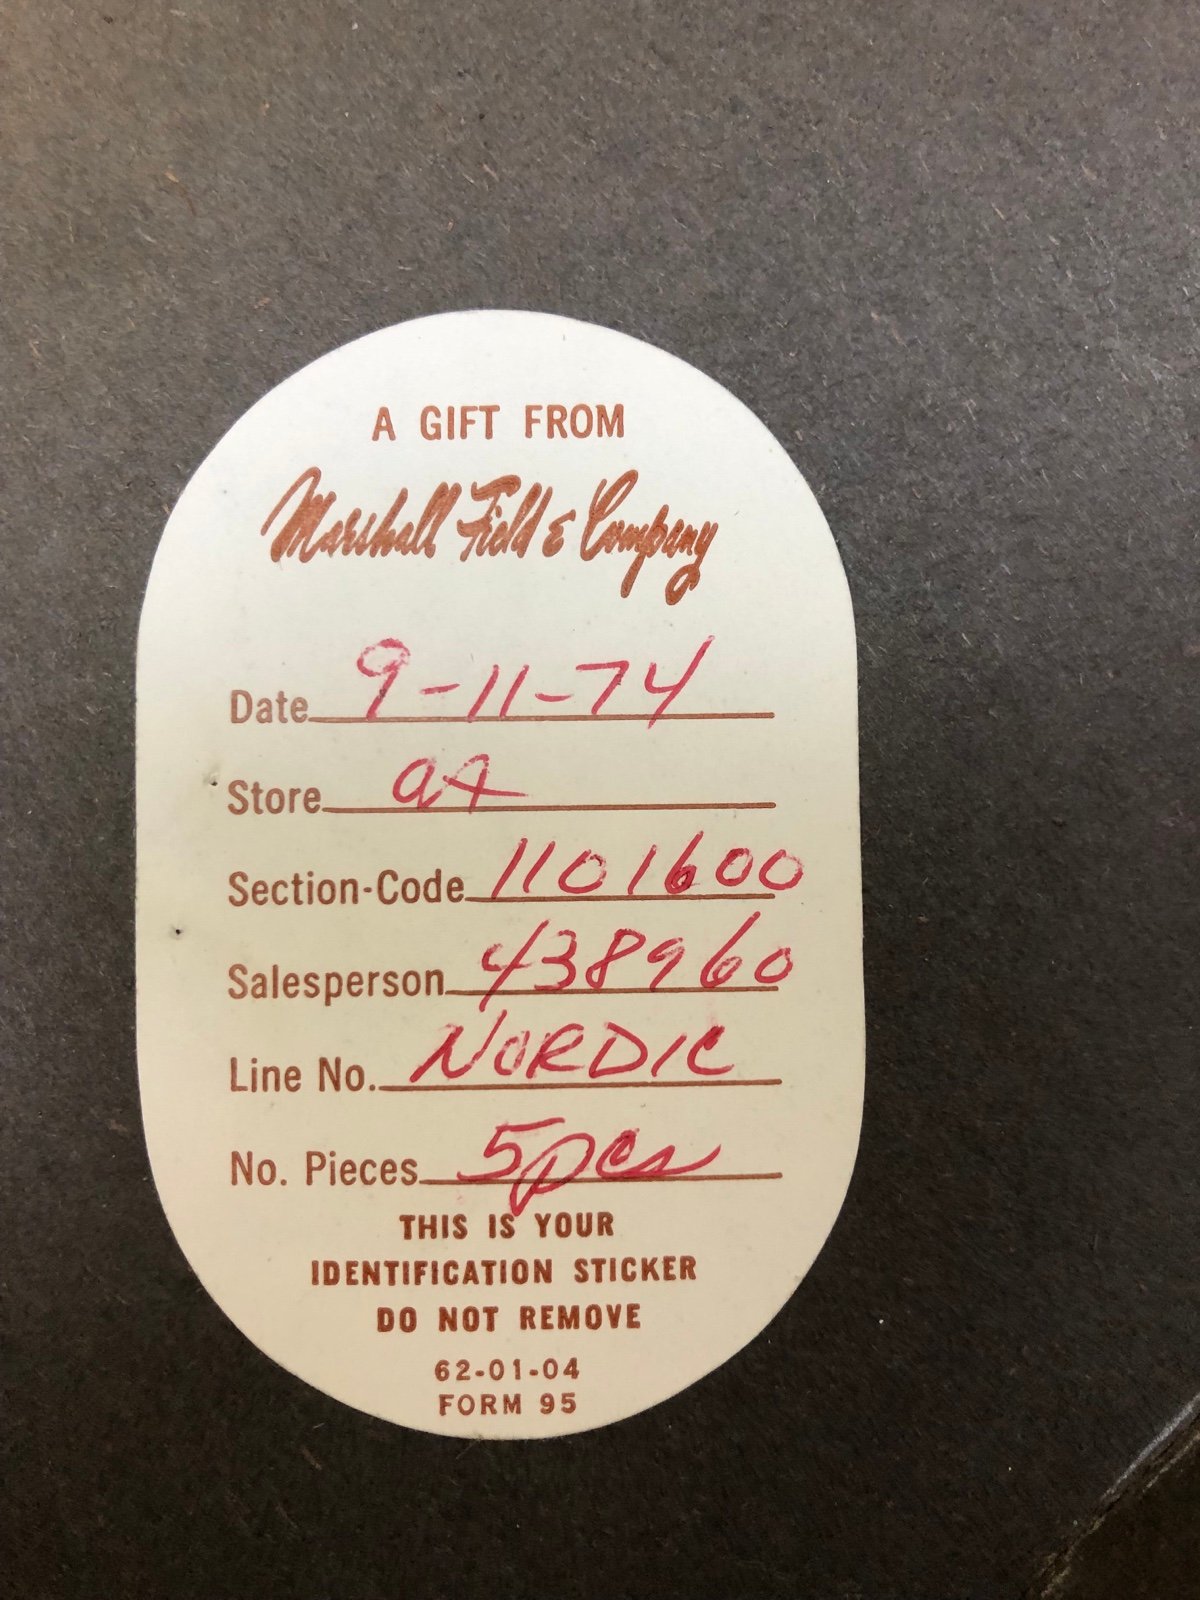 A GIFT FROM
Marshall Field & Company
Date 9-11-74
Store
Section-Code 1101600
Salesperson 438960
Line No. NORDIC
No. Pieces 5pcs
THIS IS YOUR
IDENTIFICATION STICKER
DO NOT REMOVE
62-01-04
FORM 95